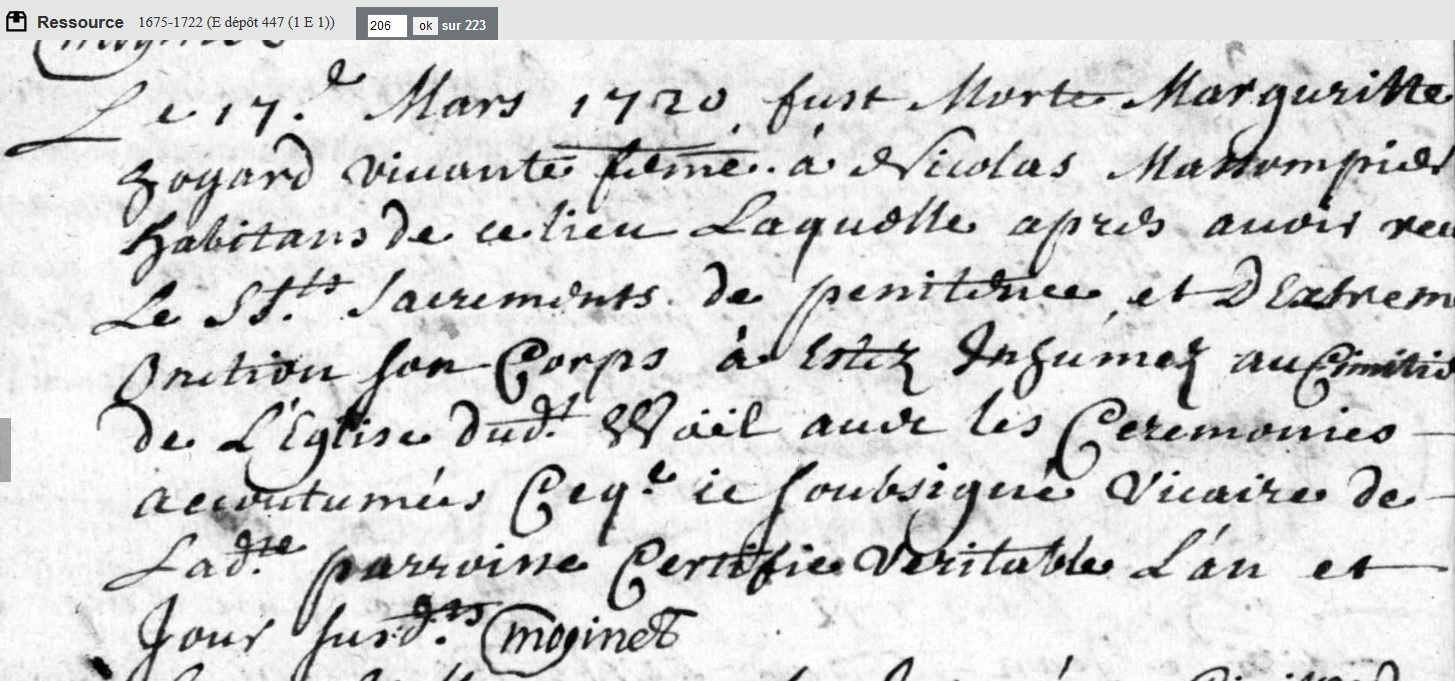 Ressource 1675-1722 (E dépôt 447 (1 E 1)) 206 ok sur 223
moginet
Le 17.e Mars 1720 fust Morte Margueritte
vivante feme à Nicolas
habitans de ce lieu Laquelle apres avoir receu
Le SS.ts Sacrements de penitence, et D Extrem
Onction son Corps à Estez Inhumez au Cimitie
de L'Eglise dud.t Woël avec les Ceremonies
accoutumées Ceq.e ie soubsigné Vicaire de
Lad.tte parroisse Certifie Veritable L'an et
Jour susd.ts moginet